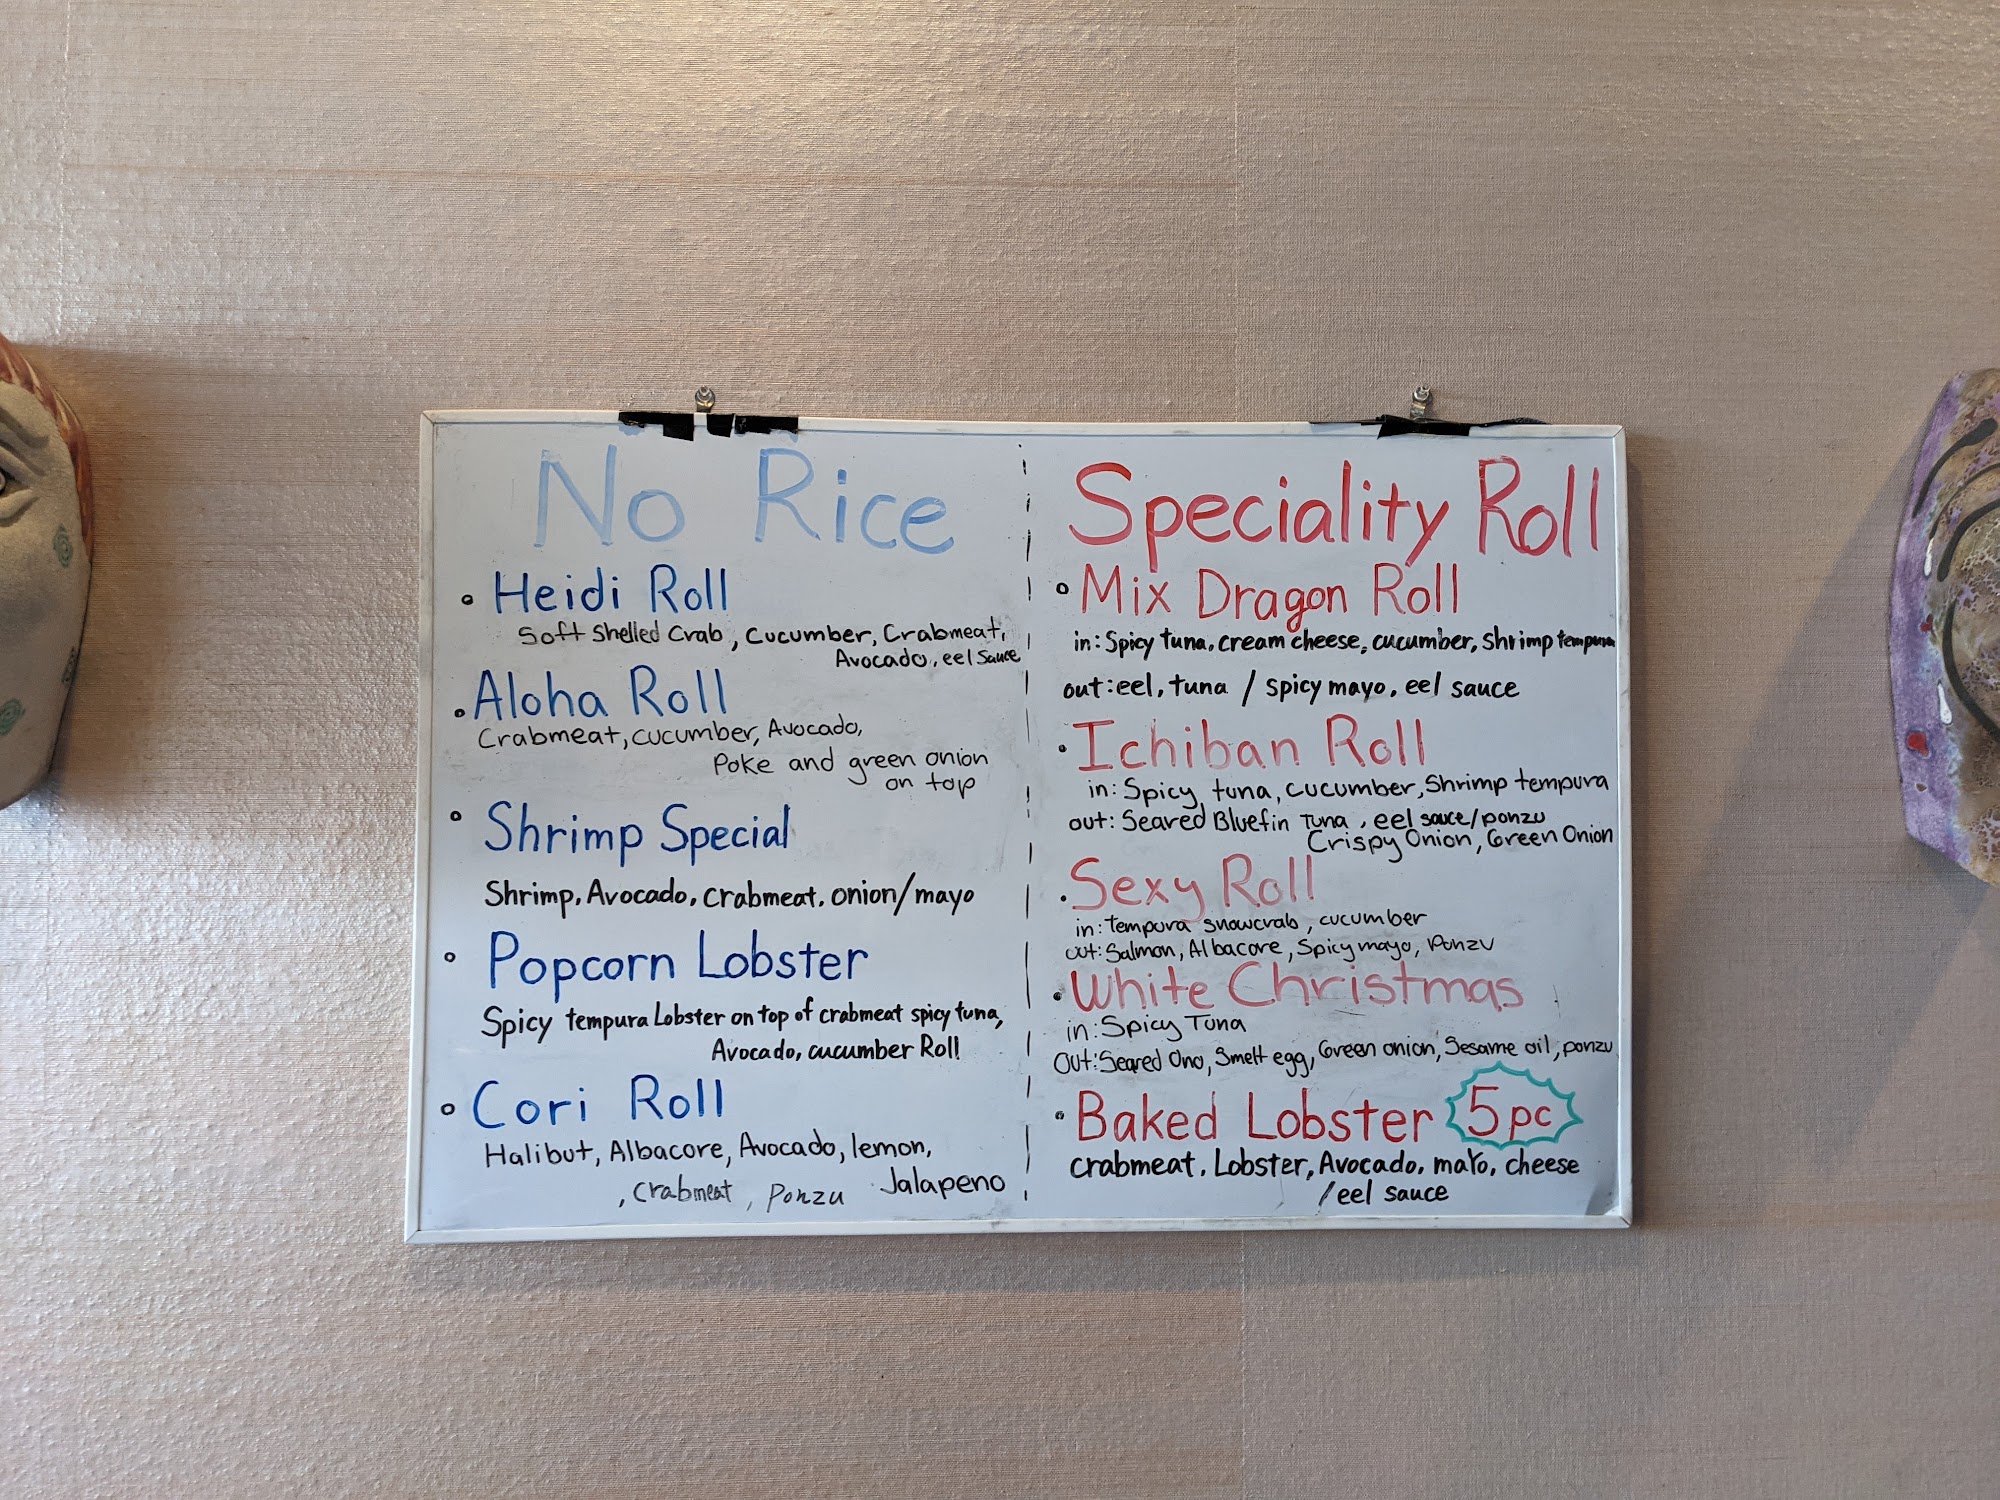 No Rice
Heidi Roll
Soft Shelled Crab, Cucumber, Crabmeat,
Avocado, eel Sauce
Aloha Roll
Crabmeat, cucumber, Avocado,
Poke and green onion
on top
Shrimp Special
Shrimp, Avocado, crabmeat, onion/mayo
Popcorn Lobster
Spicy tempura Lobster on top of crabmeat spicy tuna,
Avocado, cucumber Roll
Cori Roll
Halibut, Albacore, Avocado, lemon,
, Crabmeat, Ponzu Jalapeno
Speciality Roll
Mix Dragon Roll
in: Spicy tuna, cream cheese, cucumber, Shrimp tempura
out: eel, tuna / spicy mayo, eel sauce
Ichiban Roll
in: Spicy tuna, cucumber, Shrimp tempura
out: Seared Bluefin Tuna, eel sauce/ponzu
Crispy Onion, Green Onion
Sexy Roll
in: tempura snowcrab, cucumber
out: Salmon, Albacore, Spicy mayo, Ponzu
White Christmas
in: Spicy Tuna
Out: Seared Ono, Smelt egg, Green onion, Sesame oil, ponzu
Baked Lobster 5pc
crabmeat, Lobster, Avocado, mayo, cheese
/eel sauce